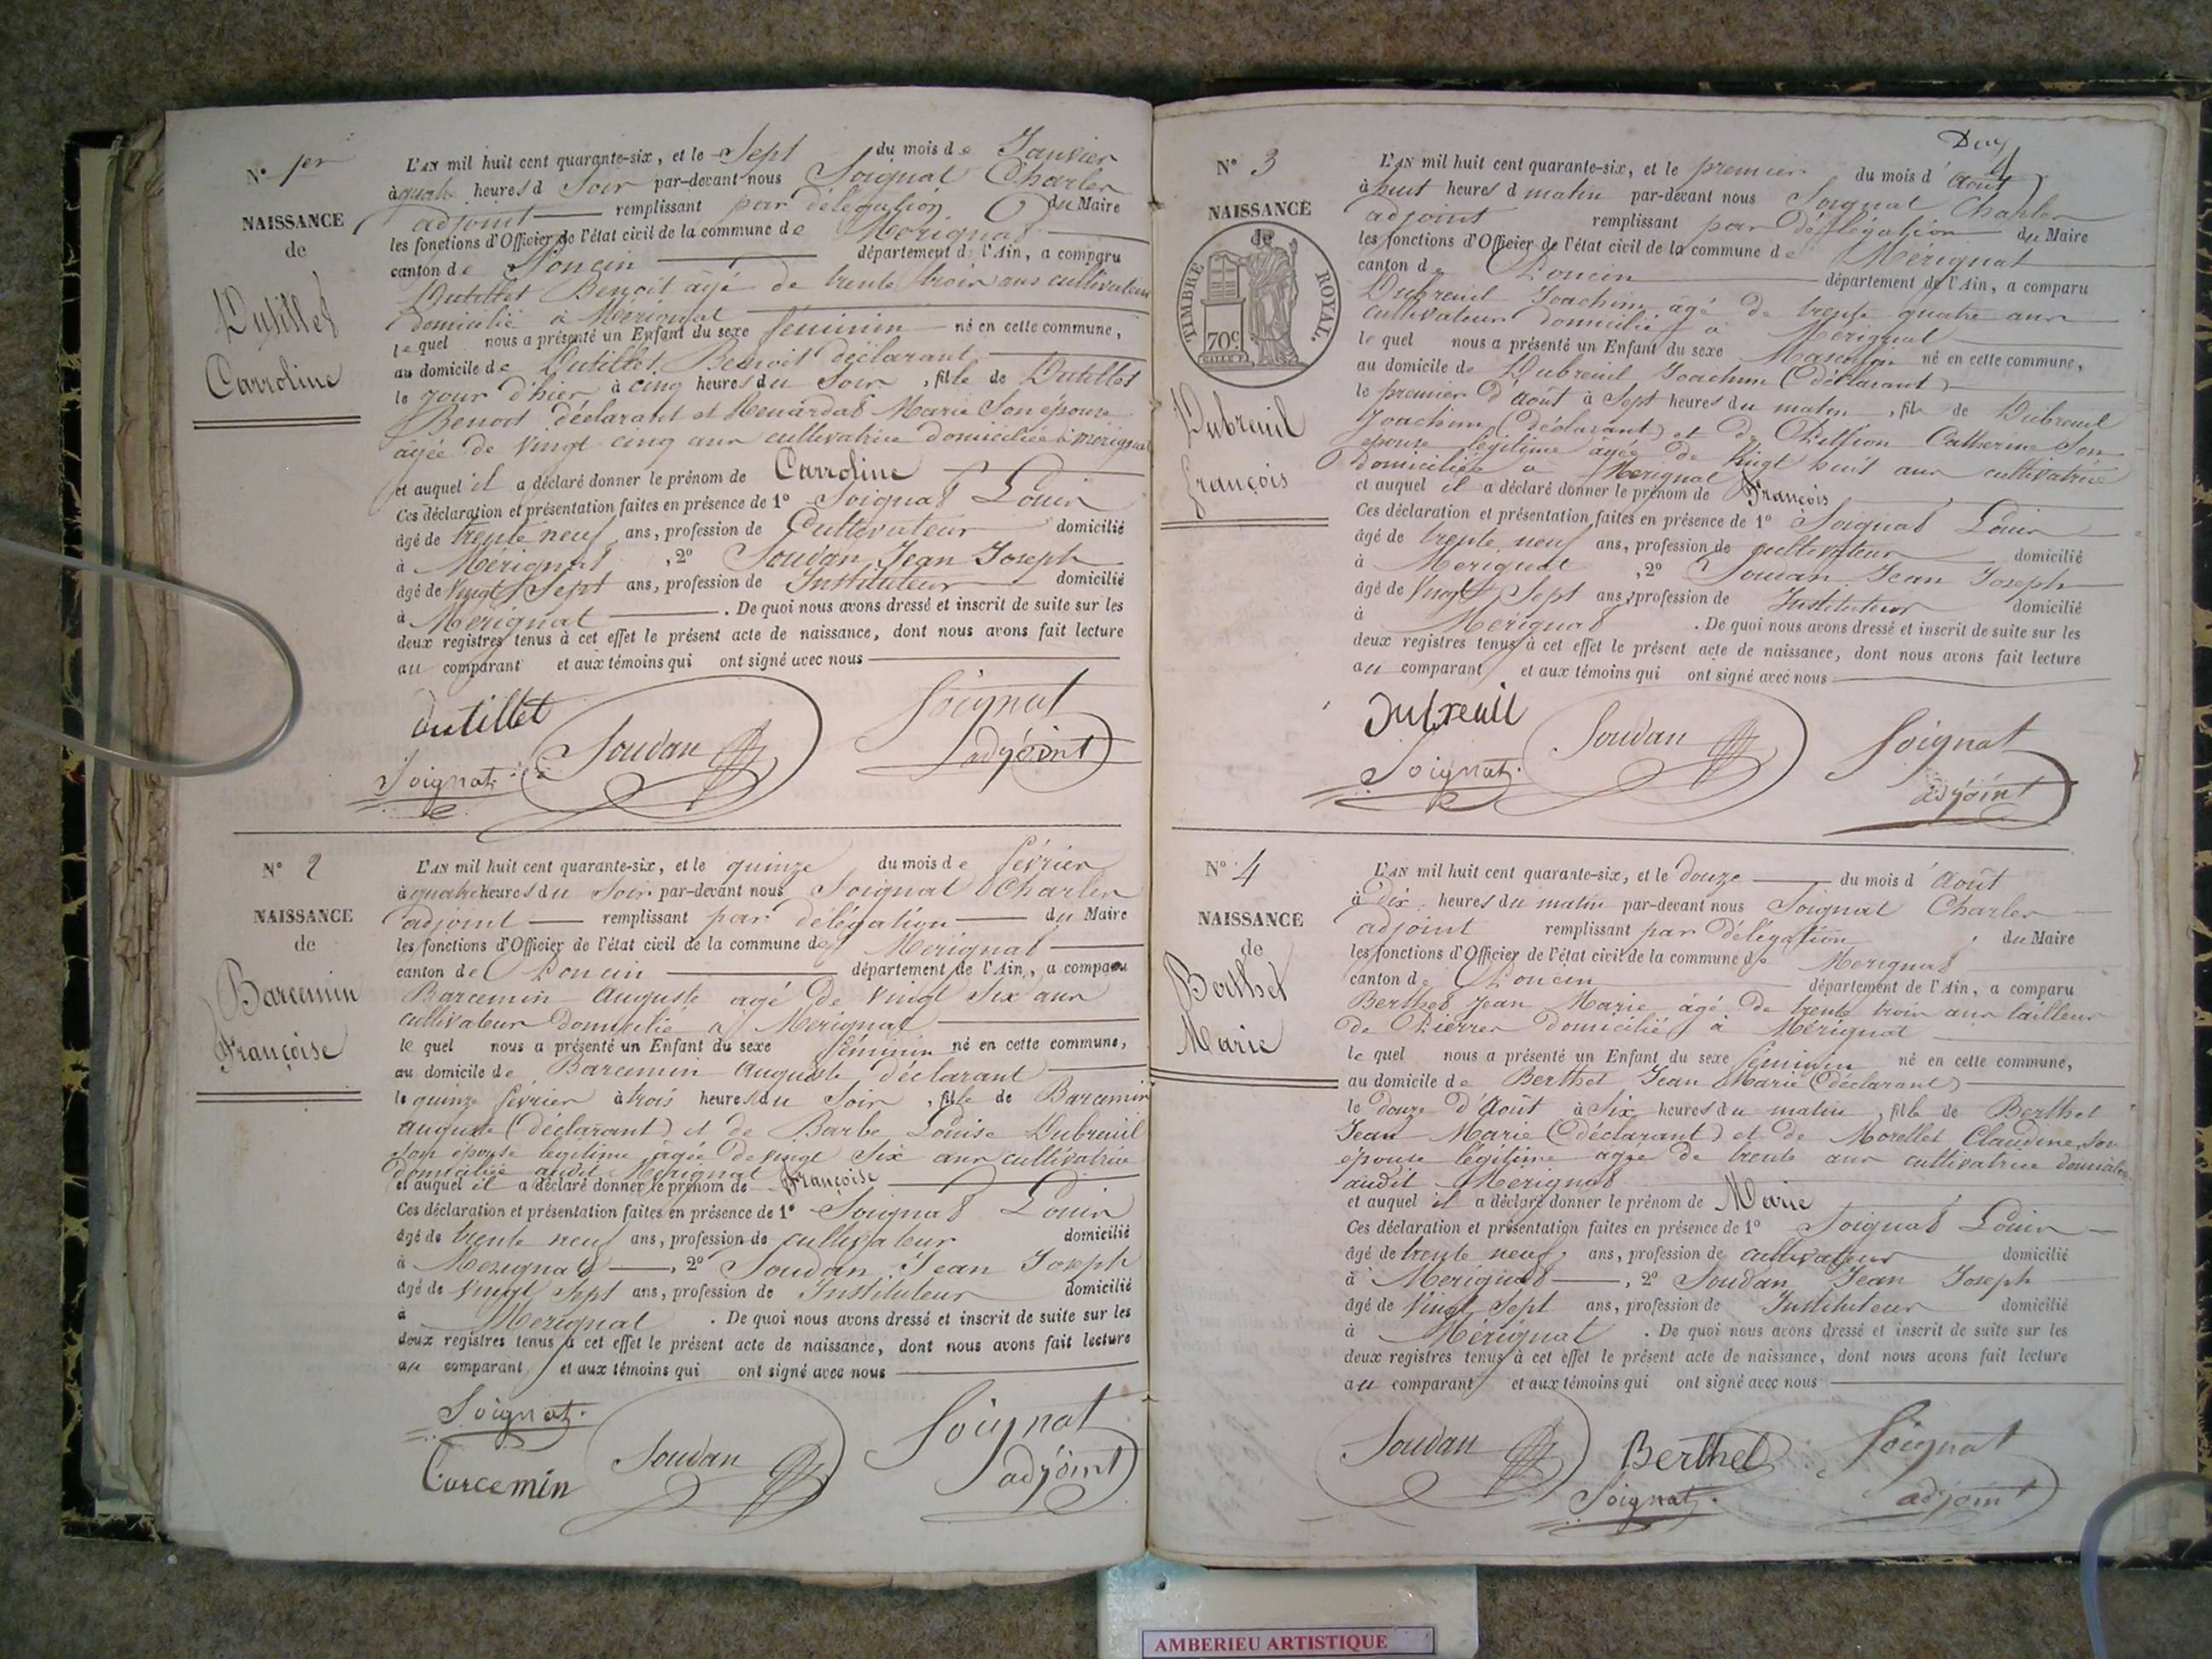 N° 1er
NAISSANCE
de
Dutillet
Carroline
L'AN mil huit cent quarante-six, et le Sept du mois de Janvier
à quatre heures d Soir par-devant nous Soignat Charles
adjoint remplissant par délégation du Maire
les fonctions d'Officier de l'état civil de la commune de Mérignat
canton de Poncin département de l'Ain, a comparu
Dutillet Benoit âgé de trente trois ans cultivateur
domicilié à Mérignat
lequel nous a présenté un Enfant du sexe féminin né en cette commune,
au domicile de Dutillet Benoit déclarant
le jour d'hier à cinq heures du Soir, fille de Dutillet
Benoit déclarant et Renardat Marie Son épouse
âgée de vingt cinq ans cultivatrice domiciliée à mérignat
et auquel il a déclaré donner le prénom de Carroline
Ces déclaration et présentation faites en présence de 1° Soignat Louis
âgé de trente neuf ans, profession de Cultivateur domicilié
à Mérignat, 2° Soudan Jean Joseph
âgé de Vingt Sept ans, profession de Instituteur domicilié
à Mérignat. De quoi nous avons dressé et inscrit de suite sur les
deux registres tenus à cet effet le présent acte de naissance, dont nous avons fait lecture
au comparant et aux témoins qui ont signé avec nous
dutillet
Soudan
Soignat
adjoint
Soignat
N° 2
NAISSANCE
de
Barcemin
Françoise
L'AN mil huit cent quarante-six, et le quinze du mois de février
à quatre heures du Soir par-devant nous Soignat Charles
adjoint remplissant par délégation du Maire
les fonctions d'Officier de l'état civil de la commune de Mérignat
canton de Poncin département de l'Ain, a comparu
Barcemin Auguste agé de Vingt Six ans
cultivateur domicilié à Mérignat
lequel nous a présenté un Enfant du sexe féminin né en cette commune,
au domicile de Barcemin Auguste déclarant
le quinze février à trois heures du Soir, fille de Barcemin
auguste (déclarant) et de Barbe Louise Dubreuil
Son épouse légitime âgée de vingt Six ans cultivatrice
domiciliée audit Mérignat
et auquel il a déclaré donner le prénom de Françoise
Ces déclaration et présentation faites en présence de 1° Soignat Louis
âgé de trente neuf ans, profession de cultivateur domicilié
à Mérignat, 2° Soudan Jean Joseph
âgé de Vingt Sept ans, profession de Instituteur domicilié
à Mérignat. De quoi nous avons dressé et inscrit de suite sur les
deux registres tenus à cet effet le présent acte de naissance, dont nous avons fait lecture
au comparant et aux témoins qui ont signé avec nous
Soignat
Soudan
Soignat
adjoint
Barcemin
N° 3
NAISSANCE
de
TIMBRE ROYAL.
70c
Dubreuil
françois
L'AN mil huit cent quarante-six, et le premier du mois d'Août
à huit heures d matin par-devant nous Soignat Charles
adjoint remplissant par délégation du Maire
les fonctions d'Officier de l'état civil de la commune de Mérignat
canton de Poncin département de l'Ain, a comparu
Dubreuil Joachim âgé de trente quatre ans
cultivateur domicilié à Mérignat
lequel nous a présenté un Enfant du sexe Masculin né en cette commune,
au domicile de Dubreuil Joachim (déclarant)
le premier d'août à Sept heures du matin, fils de Dubreuil
Joachim (déclarant) et de Catherine Son
épouse légitime âgée de Vingt huit ans cultivatrice
domiciliée à Mérignat
et auquel il a déclaré donner le prénom de François
Ces déclaration et présentation faites en présence de 1° Soignat Louis
âgé de trente neuf ans, profession de cultivateur domicilié
à Mérignat, 2° Soudan Jean Joseph
âgé de Vingt Sept ans, profession de Instituteur domicilié
à Mérignat. De quoi nous avons dressé et inscrit de suite sur les
deux registres tenus à cet effet le présent acte de naissance, dont nous avons fait lecture
au comparant et aux témoins qui ont signé avec nous
Dubreuil
Soudan
Soignat
adjoint
Soignat
N° 4
NAISSANCE
de
Berthet
Marie
L'AN mil huit cent quarante-six, et le douze du mois d'Août
à dix heures du matin par-devant nous Soignat Charles
adjoint remplissant par délégation du Maire
les fonctions d'Officier de l'état civil de la commune de Mérignat
canton de Poncin département de l'Ain, a comparu
Berthet Jean Marie âgé de trente trois ans tailleur
de Pierres domicilié à Mérignat
lequel nous a présenté un Enfant du sexe féminin né en cette commune,
au domicile de Berthet Jean Marie (déclarant)
le douze d'Août à Six heures du matin, fille de Berthet
Jean Marie (déclarant) et de Morellet Claudine, Son
épouse légitime agée de trente ans cultivatrice
audit Mérignat
et auquel il a déclaré donner le prénom de Marie
Ces déclaration et présentation faites en présence de 1° Soignat Louis
âgé de trente neuf ans, profession de cultivateur domicilié
à Mérignat, 2° Soudan Jean Joseph
âgé de Vingt Sept ans, profession de Instituteur domicilié
à Mérignat. De quoi nous avons dressé et inscrit de suite sur les
deux registres tenus à cet effet le présent acte de naissance, dont nous avons fait lecture
au comparant et aux témoins qui ont signé avec nous
Soudan
Berthet
Soignat
adjoint
Soignat
AMBERIEU ARTISTIQUE